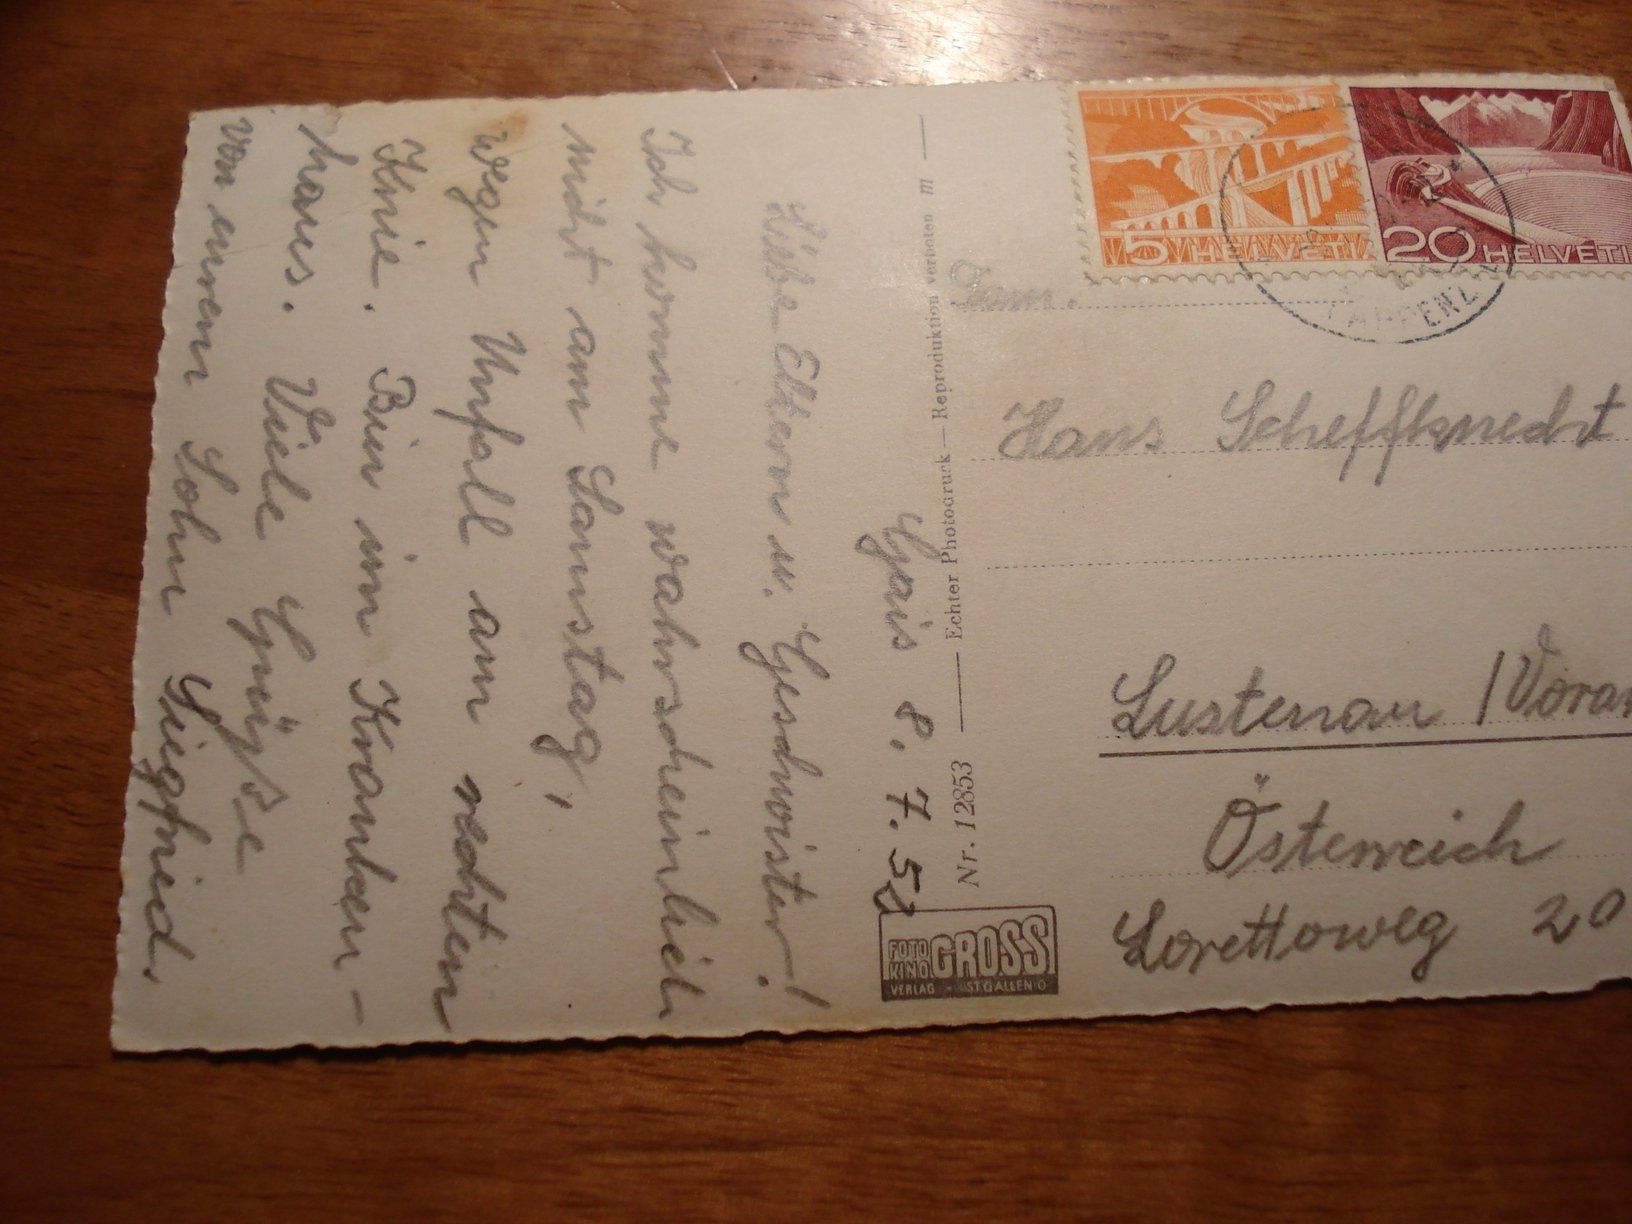 Gais 8. 7. 53
Liebe Eltern u. Geschwister!
Ich komme wahrscheinlich
nicht am Samstag,
wegen Unfall am rechten
Knie. Bin im Kranken-
haus. Viele Grüße
von eurem Sohn Siegfried.
Nr. 12853 — Echter Photodruck — Reproduktion verboten m —
FOTO
KINO
GROSS
VERLAG ST. GALLEN O
5 HELVETIA
20 HELVETI
APPENZ
Fam.
Hans Scheffknecht
Lustenau / Vorar
Österreich
Lorettoweg 20